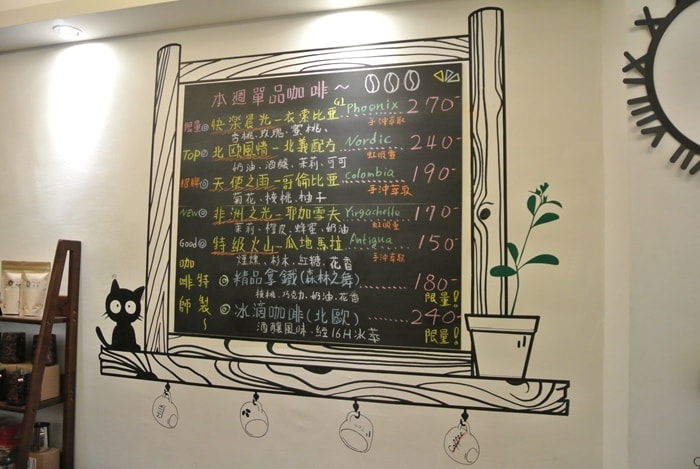 本週單品咖啡~
限量 快樂晨光-衣索比亞 G1 Phoenix 270-
杏桃、玫瑰、蜜桃、 手沖萃取
TOP 北歐風情-北義配方 Nordic 240-
奶油、酒釀、茉莉、可可 虹吸壺
招牌 天使之雨-哥倫比亞 Colombia 190-
菊花、核桃、柚子 手沖萃取
NEW 非洲之光-耶加雪夫 Yirgacheffe 170-
茉莉、橙皮、蜂蜜、奶油 虹吸壺
Good 特級火山-瓜地馬拉 Antigua 150-
煙燻、杉木、紅糖、花香 手沖萃取
咖啡師特製~
精品拿鐵(森林之舞) 180-
核桃、巧克力、奶油、花香 限量!
冰滴咖啡(北歐) 240-
酒釀風味、經16H冰萃 限量!
Coffee